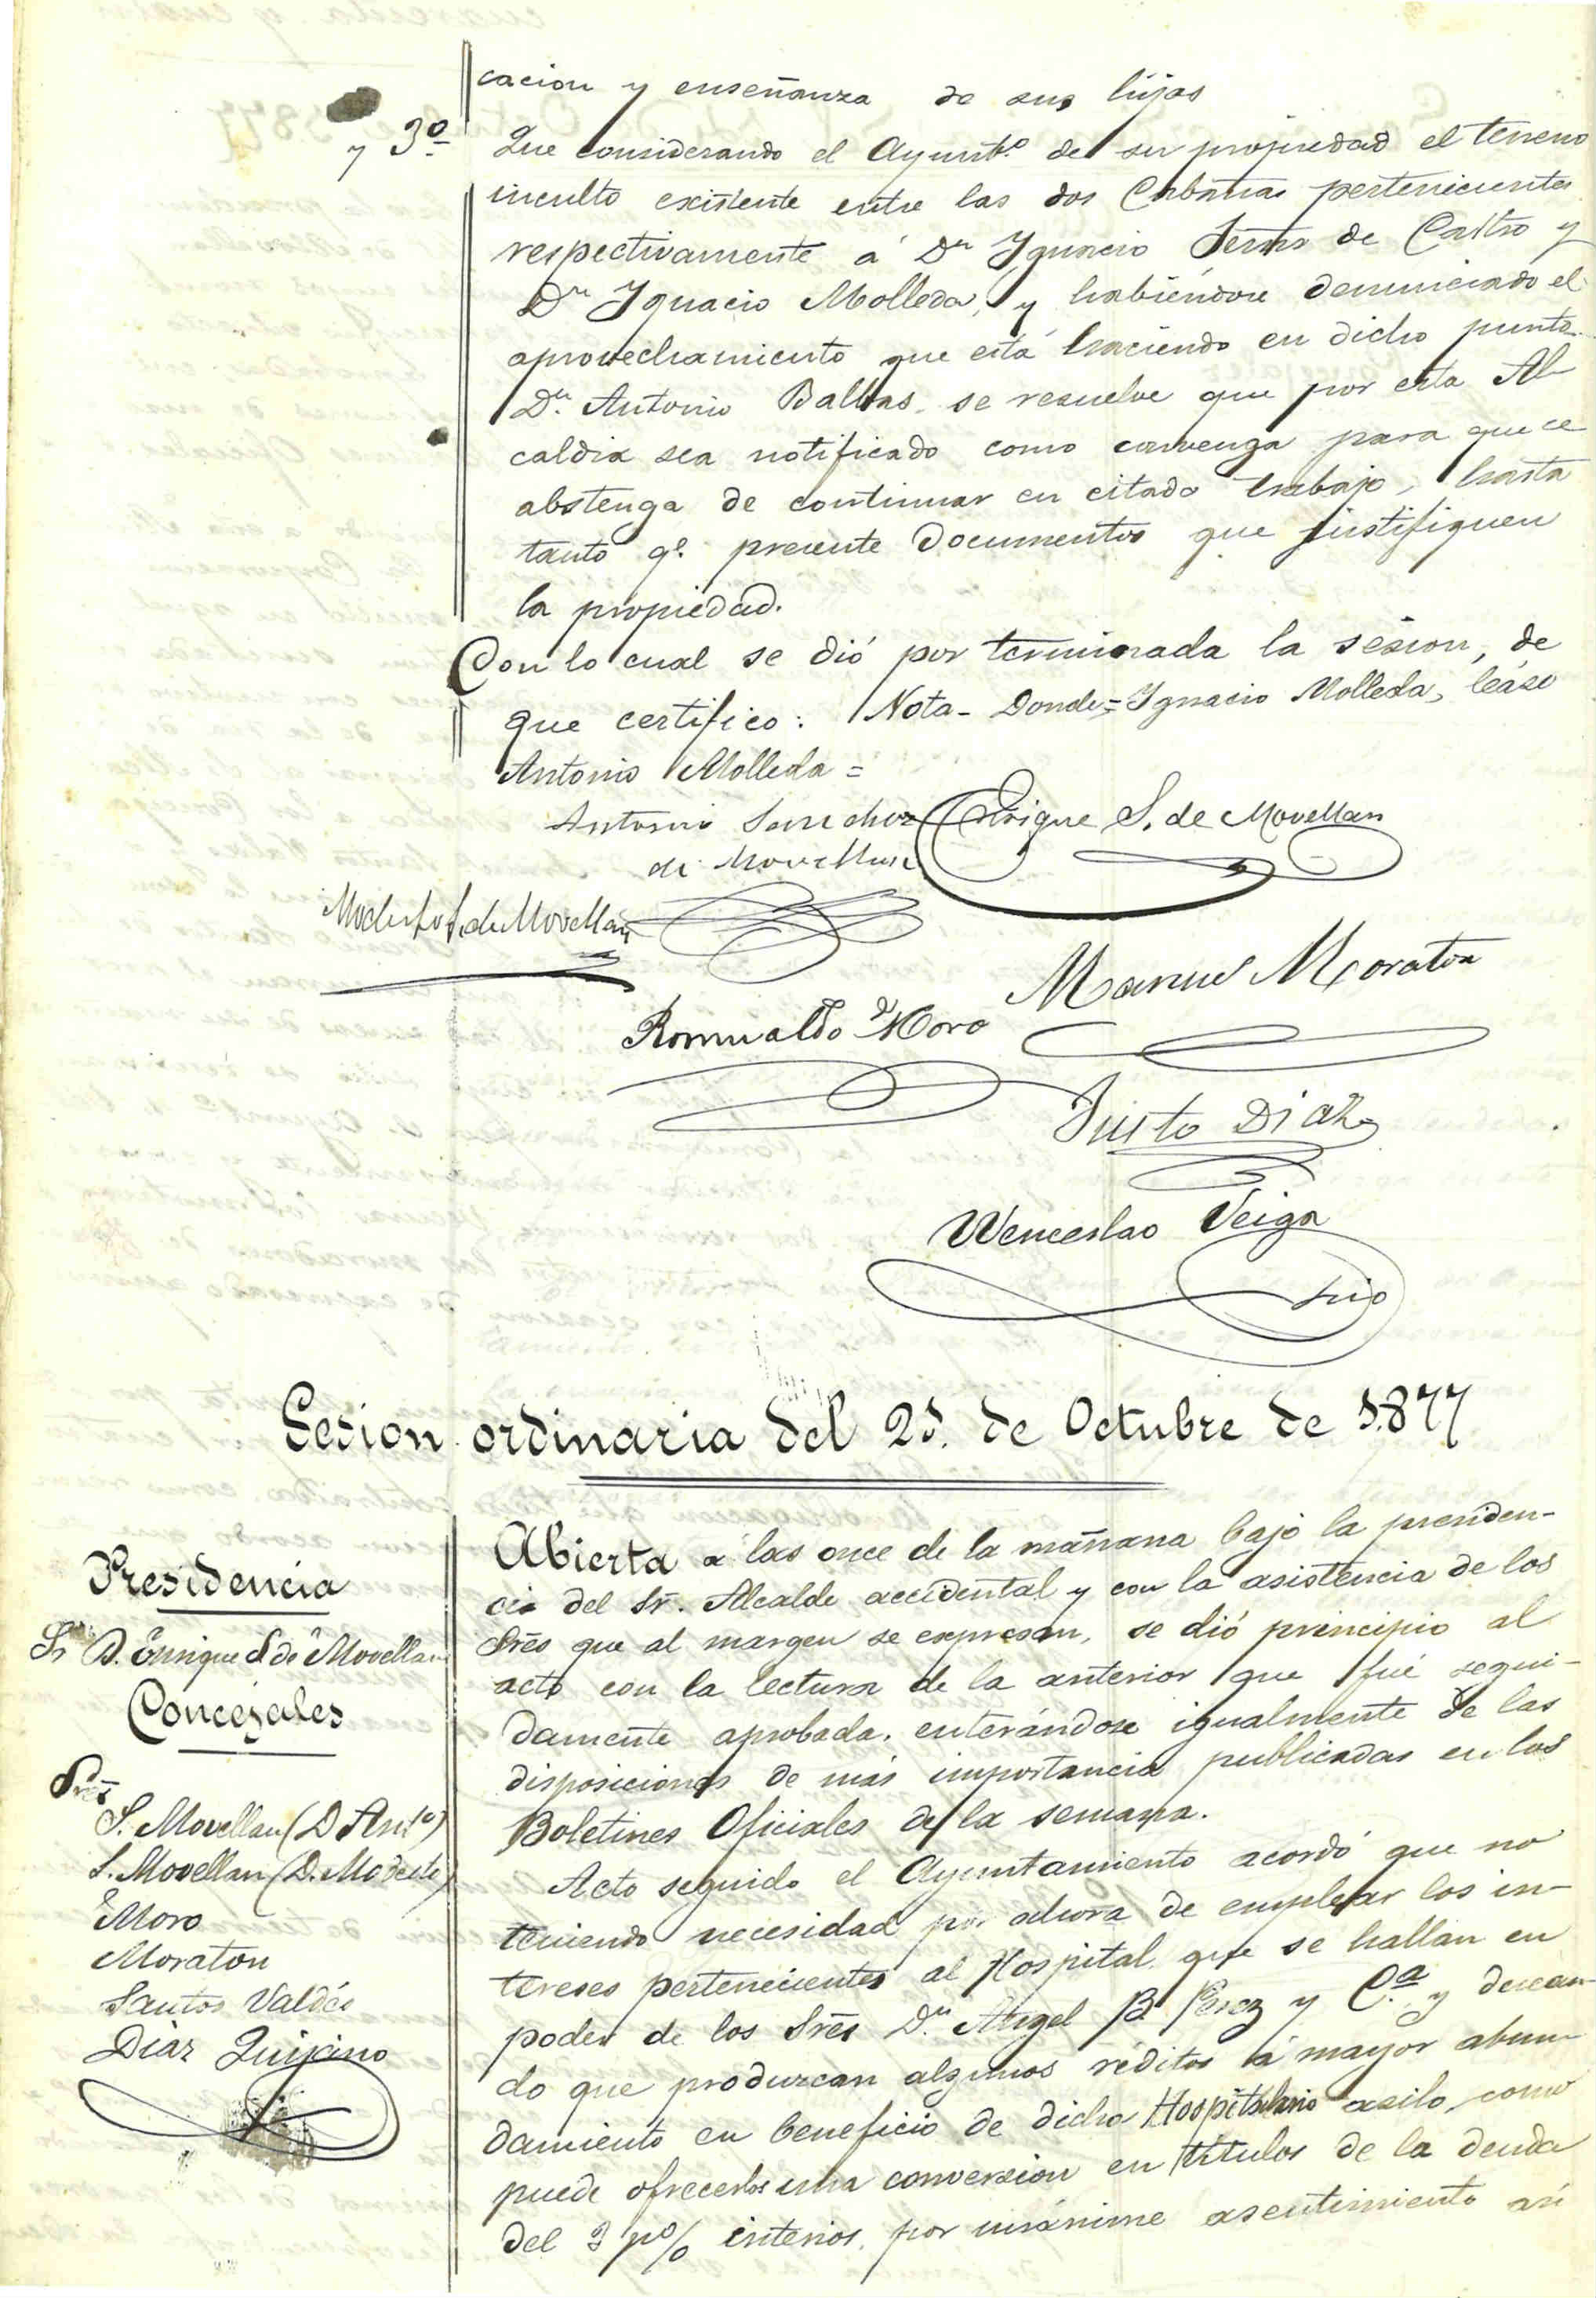 cacion y enseñanza de sus hijas
y 3º Que considerando el Ayuntº de su propiedad el terreno
inculto existente entre las dos Cabañas pertenecientes
respectivamente á Dn Ygnacio de Castro y
Dn Ygnacio Molleda, y habiéndose denunciado el
aprovechamiento que está haciendo en dicho punto
Dn. Antonio Balbas, se resuelve que por esta Al-
caldia sea notificado como convenga para que se
abstenga de continuar en citado trabajo, hasta
tanto qe. presente documentos que justifiquen
la propiedad.
Con lo cual se dió por terminada la sesion, de
que certifico: Nota- Donde=Ygnacio Molleda, léase
Antonio Molleda=
Antonio Sanchez
de Movellan
Enrique S. de Movellan
Modesto S. de Movellan
Manuel Moraton
Romualdo Moro
Justo Diaz
Wenceslao Veiga
Srio
Sesion ordinaria del 21. de Octubre de 1.877
Presidencia
Sr D. Enrique S de Movellan
Concejales
Sres
S. Movellan (D Antº)
S. Movellan (D. Modesto)
Moro
Moraton
Santos Valdés
Diaz Quijano
Abierta a las once de la mañana bajo la presiden-
cia del Sr. Alcalde accidental y con la asistencia de los
Sres que al margen se expresan, se dió principio al
acto con la lectura de la anterior que fué segui-
damente aprobada, enterándose igualmente de las
disposiciones de más importancia publicadas en los
Boletines Oficiales de la semana.
Acto seguido el Ayuntamiento acordó que no
teniendo necesidad por ahora de emplear los in-
tereses pertenecientes al Hospital que se hallan en
poder de los Sres Dn. Angel B. Perez y C.ª y desean-
do que produzcan algunos réditos á mayor abun-
damiento en beneficio de dicho Hospitalario asilo, como
puede ofrecerlos una conversion en títulos de la deuda
del 3 pº/o interior, por unánime asentimiento asi